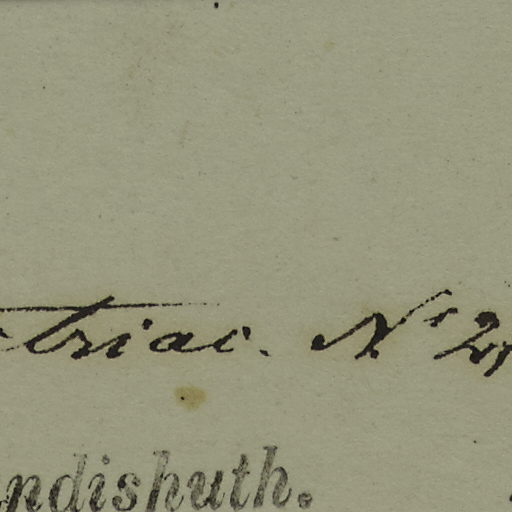 triac. Nr 2
ndishuth.